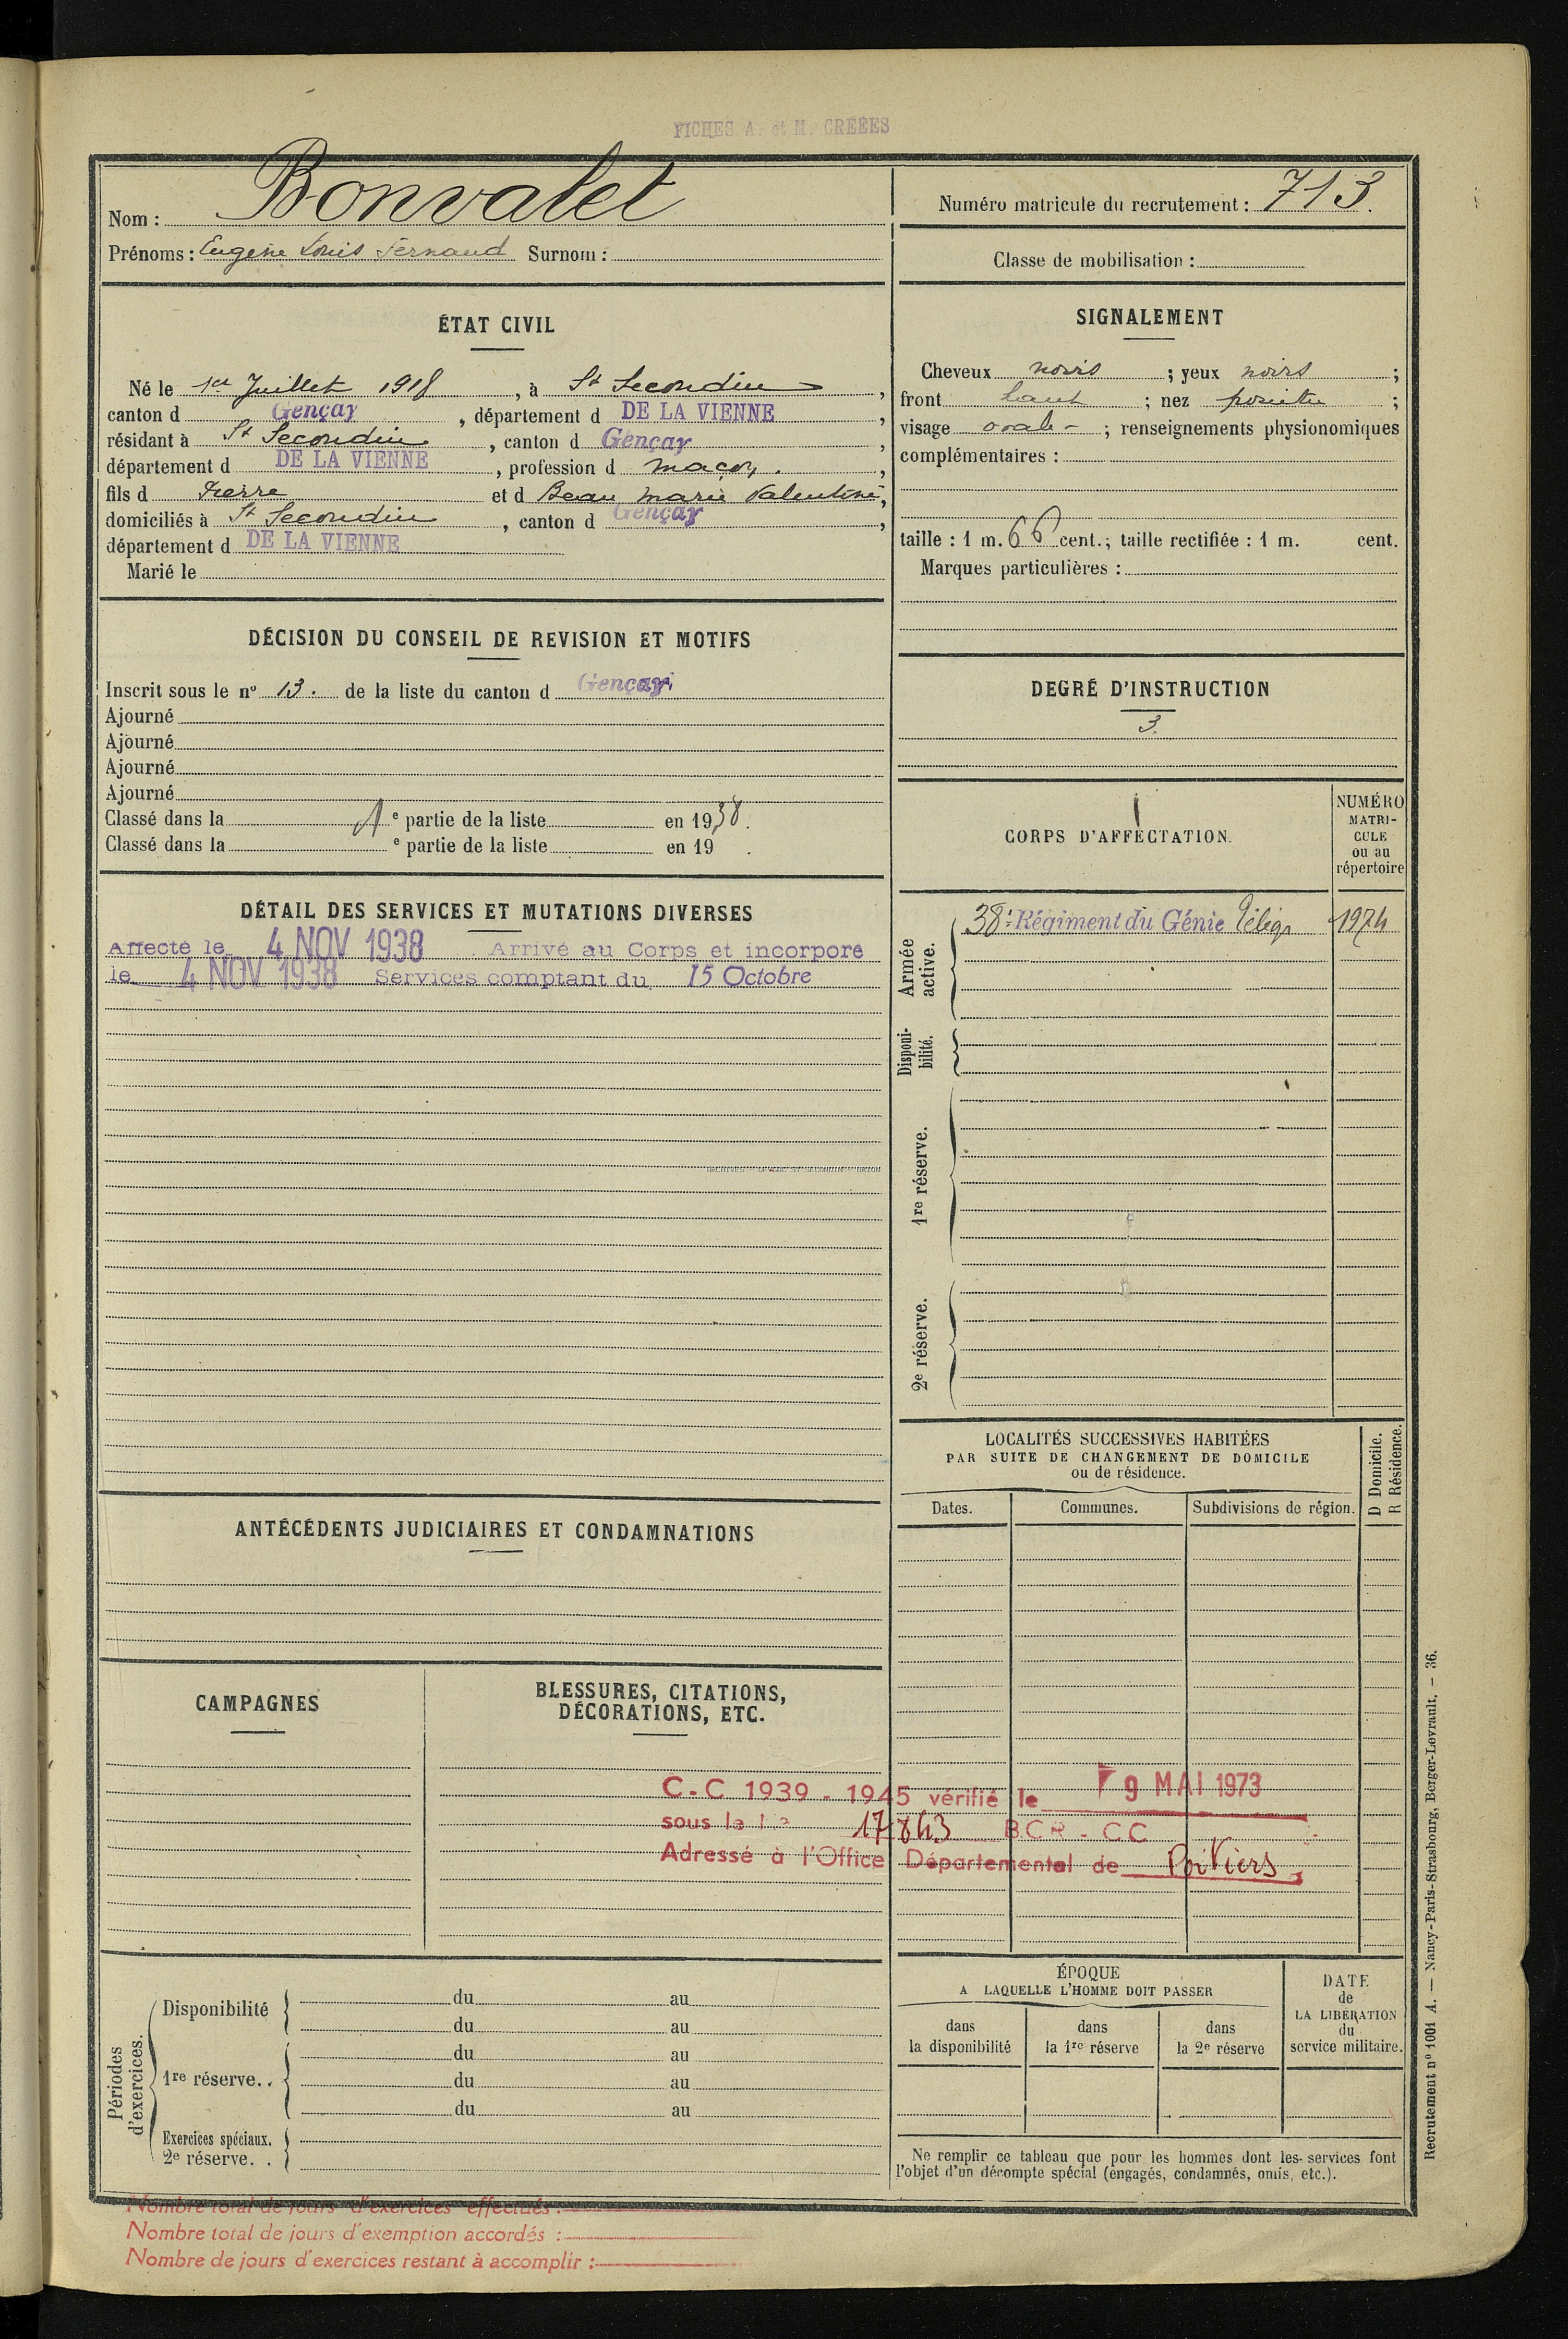 FICHES A. et M. CRÉÉES
Nom : Bonvalet
Prénoms : Eugène Louis Fernand Surnom :
Numéro matricule du recrutement : 713.
Classe de mobilisation :
ÉTAT CIVIL
Né le 1er Juillet 1918, à St Secondin,
canton d Gençay, département d DE LA VIENNE,
résidant à St Secondin, canton d Gençay,
département d DE LA VIENNE, profession d maçon.,
fils d Pierre et d Beau Marie Valentine,
domiciliés à St Secondin, canton d Gençay,
département d DE LA VIENNE
Marié le
SIGNALEMENT
Cheveux noirs ; yeux noirs ;
front haut ; nez pointu ;
visage ovale - ; renseignements physionomiques
complémentaires :
taille : 1 m. 66 cent.; taille rectifiée : 1 m. cent.
Marques particulières :
DÉCISION DU CONSEIL DE REVISION ET MOTIFS
Inscrit sous le nº 13. de la liste du canton d Gençay
Ajourné
Ajourné
Ajourné
Ajourné
Classé dans la 1e partie de la liste en 1938.
Classé dans la e partie de la liste en 19 .
DEGRÉ D'INSTRUCTION
3.
CORPS D'AFFECTATION.
NUMÉRO
MATRI-
CULE
ou au
répertoire
Armée
active.
38e Régiment du Génie 1974
Disponi-
bilité.
1re réserve.
2e réserve.
DÉTAIL DES SERVICES ET MUTATIONS DIVERSES
Affecté le 4 NOV 1938 Arrivé au Corps et incorporé
le 4 NOV 1938 Services comptant du 15 Octobre
LOCALITÉS SUCCESSIVES HABITÉES
PAR SUITE DE CHANGEMENT DE DOMICILE
ou de résidence.
D Domicile.
R Résidence.
Dates. Communes. Subdivisions de région.
ANTÉCÉDENTS JUDICIAIRES ET CONDAMNATIONS
CAMPAGNES
BLESSURES, CITATIONS,
DÉCORATIONS, ETC.
C.C 1939 - 1945 vérifié le 9 MAI 1973
sous le n° 17843 BCR - CC
Adressé à l'Office Départemental de Poitiers
Périodes
d'exercices.
Disponibilité
du au
du au
1re réserve. .
du au
du au
du au
Exercices spéciaux.
2e réserve. .
ÉPOQUE
A LAQUELLE L'HOMME DOIT PASSER
dans
la disponibilité
dans
la 1re réserve
dans
la 2e réserve
DATE
de
LA LIBÉRATION
du
service militaire.
Ne remplir ce tableau que pour les hommes dont les services font
l'objet d'un décompte spécial (engagés, condamnés, omis, etc.).
Nombre total de jours d'exercices effectués :
Nombre total de jours d'exemption accordés :
Nombre de jours d'exercices restant à accomplir :
Recrutement nº 1001 A. — Nancy-Paris-Strasbourg, Berger-Levrault. — 36.